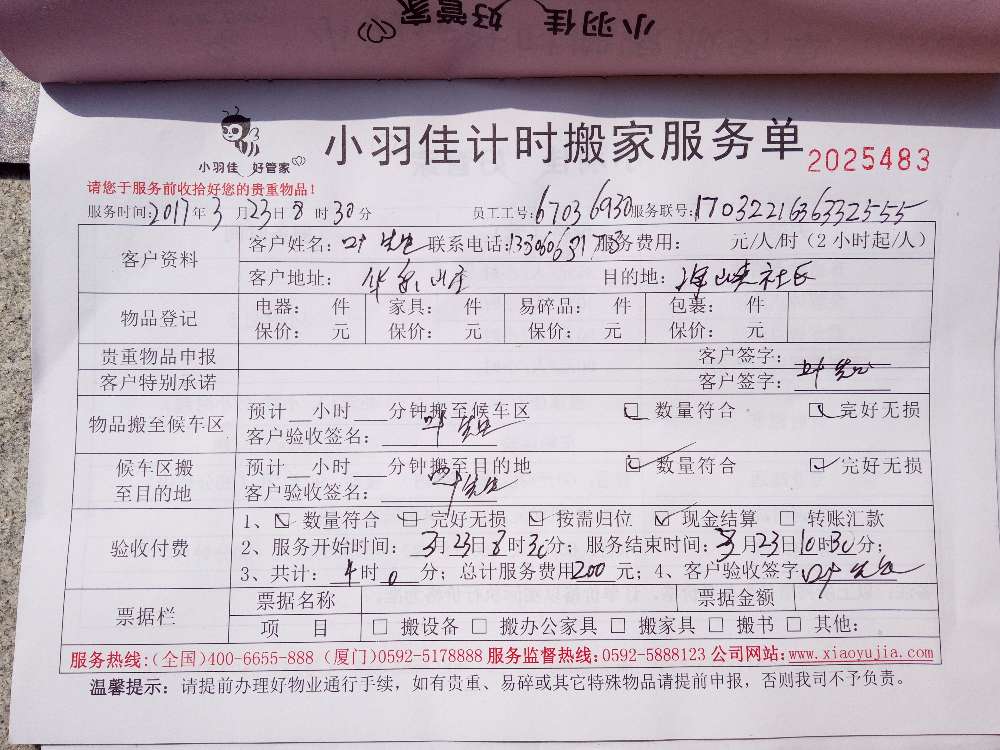 小羽佳 好管家
小羽佳 好管家
小羽佳计时搬家服务单
2025483
请您于服务前收拾好您的贵重物品！
服务时间：2017年3月23日8时30分 员工工号：67036930 服务联号：1703221636332555
客户资料
客户姓名：叶先生 联系电话： 服务费用： 元/人/时（2小时起/人）
客户地址： 山庄 目的地： 社区
物品登记
电器： 件 家具： 件 易碎品： 件 包裹： 件
保价： 元 保价： 元 保价： 元 保价： 元
贵重物品申报 客户签字：
客户特别承诺 客户签字：叶先生
物品搬至候车区
预计__小时__分钟搬至候车区 ☑ 数量符合 ☑ 完好无损
客户验收签名：叶先生
候车区搬至目的地
预计__小时__分钟搬至目的地 ☑ 数量符合 ☑ 完好无损
客户验收签名：叶先生
验收付费
1、☑ 数量符合 ☑ 完好无损 ☑ 按需归位 ☑ 现金结算 □ 转账汇款
2、服务开始时间：3月23日8时30分；服务结束时间：3月23日10时30分；
3、共计：4时0分；总计服务费用200元；4、客户验收签字叶先生
票据栏
票据名称 票据金额
项 目 □ 搬设备 □ 搬办公家具 □ 搬家具 □ 搬书 □ 其他：
服务热线：（全国）400-6655-888（厦门）0592-5178888 服务监督热线：0592-5888123 公司网站：www.xiaoyujia.com
温馨提示：请提前办理好物业通行手续，如有贵重、易碎或其它特殊物品请提前申报，否则我司不予负责。